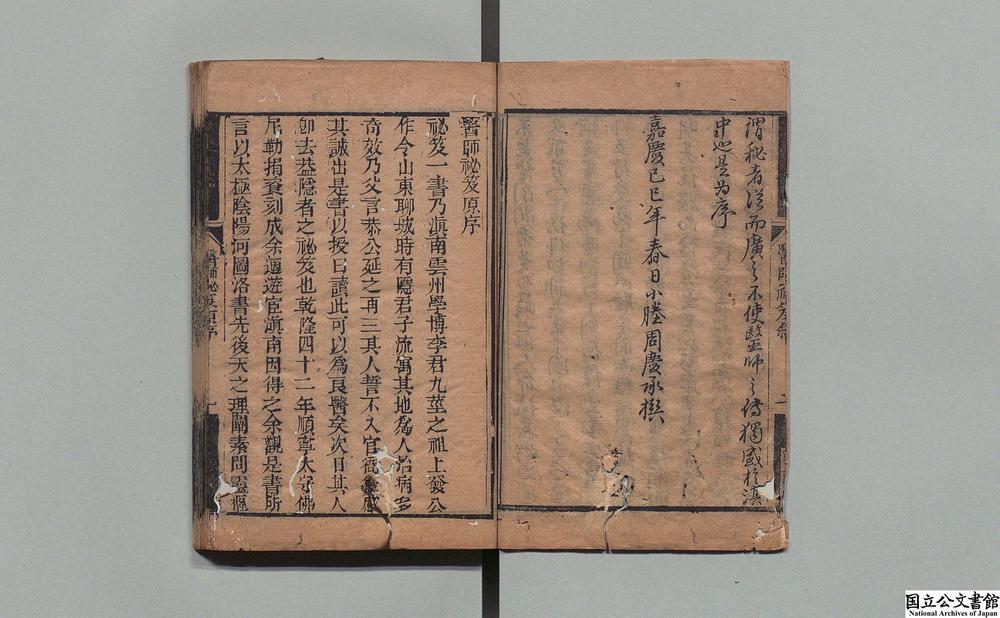 謂秘者從而廣之不使醫師之傳獨盛於滇
中也是为序
嘉慶己巳年春日小塍周慶承撰
醫師祕笈原序
祕笈一書乃滇南雲州學博李君九莖之祖上發公
作令山東聊城時有隱君子流寓其地爲人治病多
奇效乃父言恭公延之再三其人誓不入官衙感
其誠出是書以授曰讀此可以爲良醫矣次日其人
卽去葢隱者之祕笈也乾隆四十二年順寧太守佛
尼勒捐養刻成余適遊宦滇南因得之余觀是書所
言以太極陰陽河圖洛書先後天之理闡素問靈樞
醫師祕笈原序
一
国立公文書館
National Archives of Japan